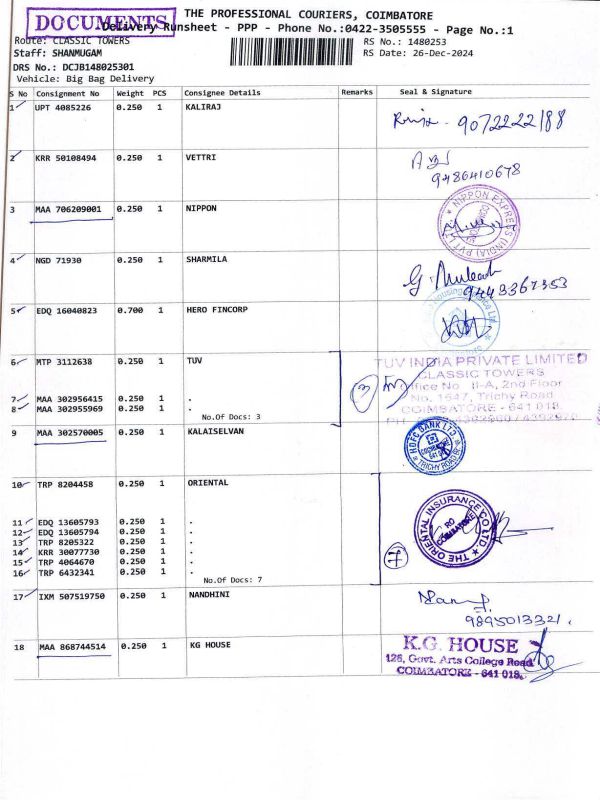 DOCUMENTS
THE PROFESSIONAL COURIERS, COIMBATORE
Delivery Runsheet - PPP - Phone No.:0422-3505555 - Page No.:1
Route: CLASSIC TOWERS
RS No.: 1480253
Staff: SHANMUGAM
RS Date: 26-Dec-2024
DRS No.: DCJB148025301
Vehicle: Big Bag Delivery
S No Consignment No Weight PCS Consignee Details Remarks Seal & Signature
1 UPT 4085226 0.250 1 KALIRAJ
9072222188
2 KRR 50108494 0.250 1 VETTRI
9486410678
3 MAA 706209001 0.250 1 NIPPON
NIPPON EXPRESS (INDIA) PVT LTD
4 NGD 71930 0.250 1 SHARMILA
9443367353
5 EDQ 16040823 0.700 1 HERO FINCORP
6 MTP 3112638 0.250 1 TUV
TUV INDIA PRIVATE LIMITED
CLASSIC TOWERS
Office No II-A, 2nd Floor
No. 1647, Trichy Road
COIMBATORE - 641 018.
3
7 MAA 302956415 0.250 1 .
8 MAA 302955969 0.250 1 .
No.Of Docs: 3
9 MAA 302570005 0.250 1 KALAISELVAN
HDFC BANK LTD
COIMBATORE
641 018
TRICHY ROAD BR
10 TRP 8204458 0.250 1 ORIENTAL
THE ORIENTAL INSURANCE CO LTD
RO
COIMBATORE
7
11 EDQ 13605793 0.250 1 .
12 EDQ 13605794 0.250 1 .
13 TRP 8205322 0.250 1 .
14 KRR 30077730 0.250 1 .
15 TRP 4064670 0.250 1 .
16 TRP 6432341 0.250 1 .
No.Of Docs: 7
17 IXM 507519750 0.250 1 NANDHINI
9895013321.
18 MAA 868744514 0.250 1 KG HOUSE
K.G. HOUSE
126, Govt. Arts College Road
COIMBATORE - 641 018.